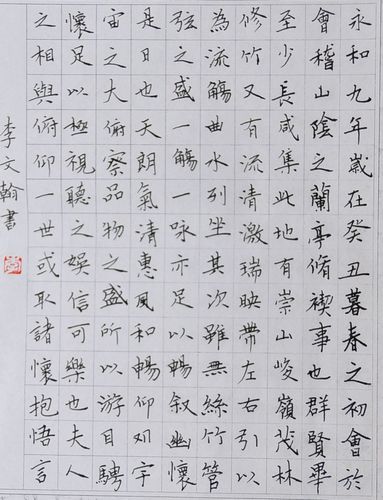 永和九年歲在癸丑暮春之初會於
會稽山陰之蘭亭脩禊事也群賢畢
至少長咸集此地有崇山峻嶺茂林
修竹又有流清激瑞映帶左右引以
為流觴曲水列坐其次雖無絲竹管
弦之盛一觴一詠亦足以暢叙幽懷
是日也天朗氣清惠風和暢仰观宇
宙之大俯察品物之盛所以游目騁
懷足以極視聽之娛信可樂也夫人
之相與俯仰一世或取諸懷抱悟言
李文翰書